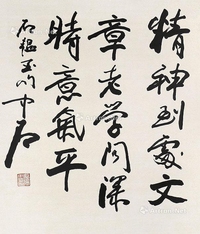 精神到處文
章老学问深
時意氣平
石韫玉句 中石